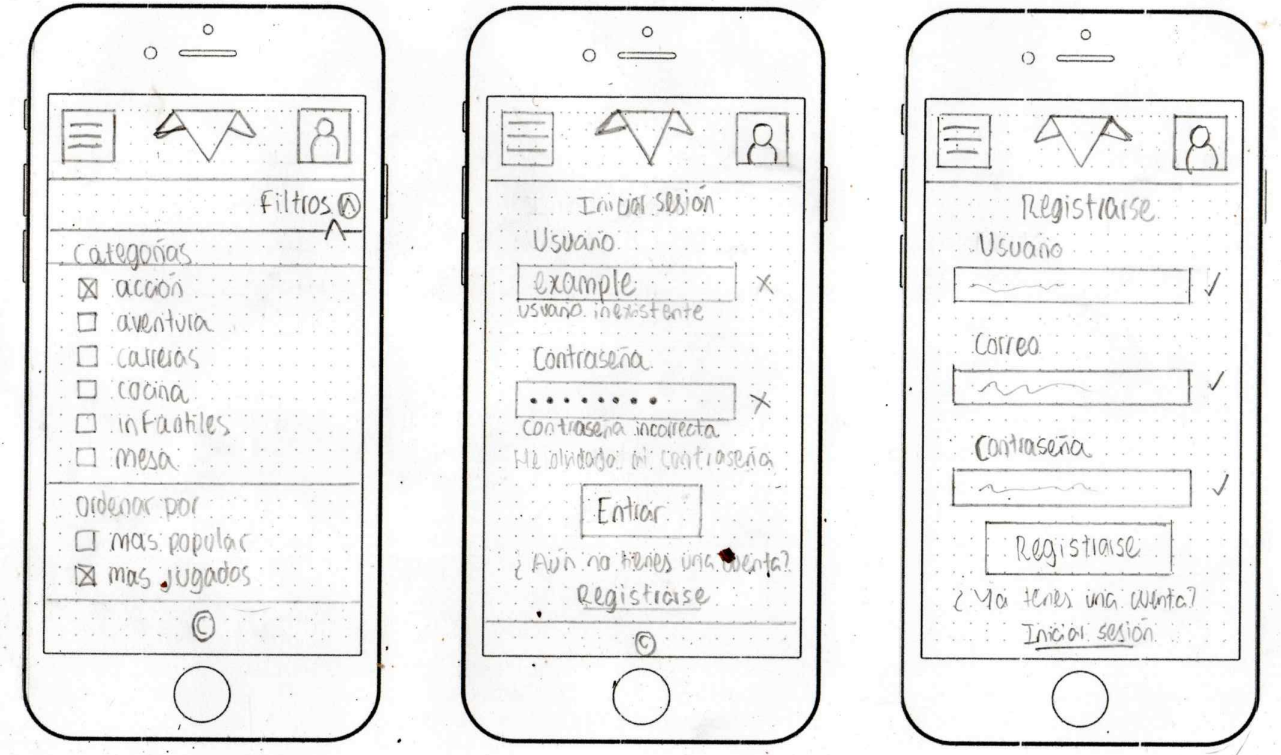 Filtros
categorías
acción
aventura
carreras
cocina
infantiles
mesa
ordenar por
mas popular
mas jugados
©
Iniciar sesión
Usuario
example
usuario inexistente
Contraseña
••••••••
contraseña incorrecta
He olvidado mi contraseña
Entrar
¿Aún no tienes una cuenta?
Registrarse
©
Registrarse
Usuario
Correo
Contraseña
Registrarse
¿Ya tenes una cuenta?
Iniciar sesión